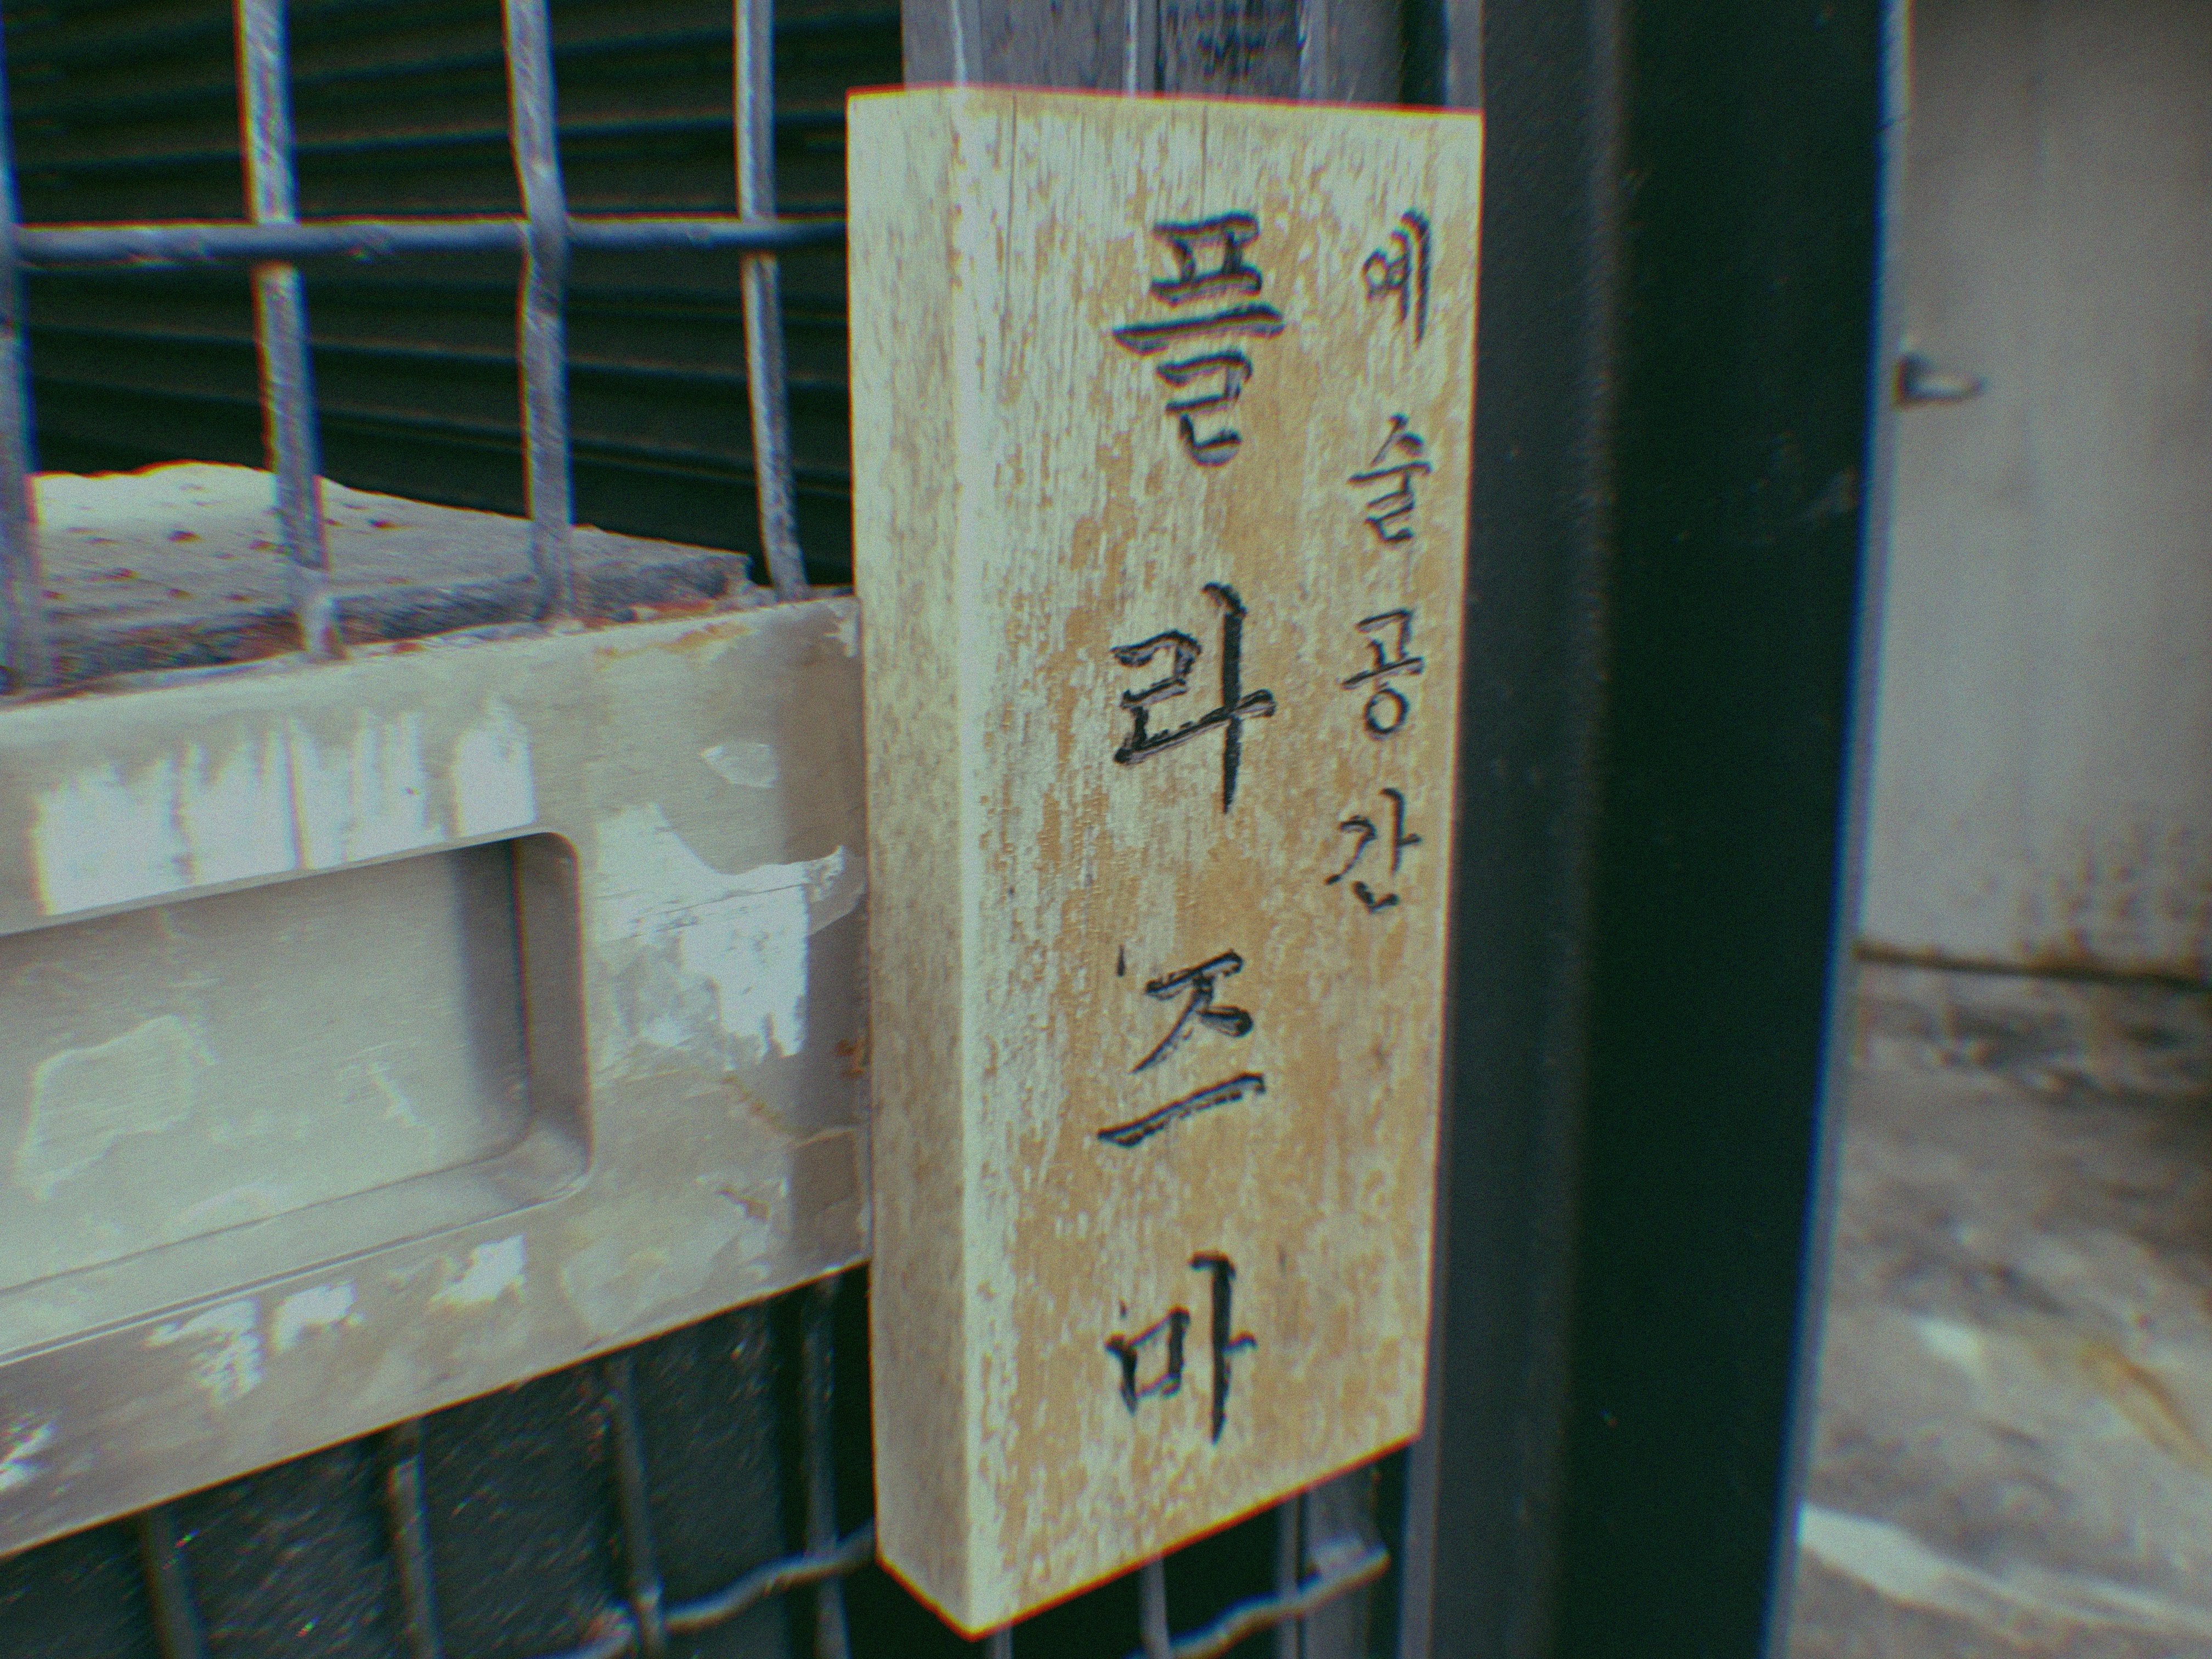 예술공간
플라즈마